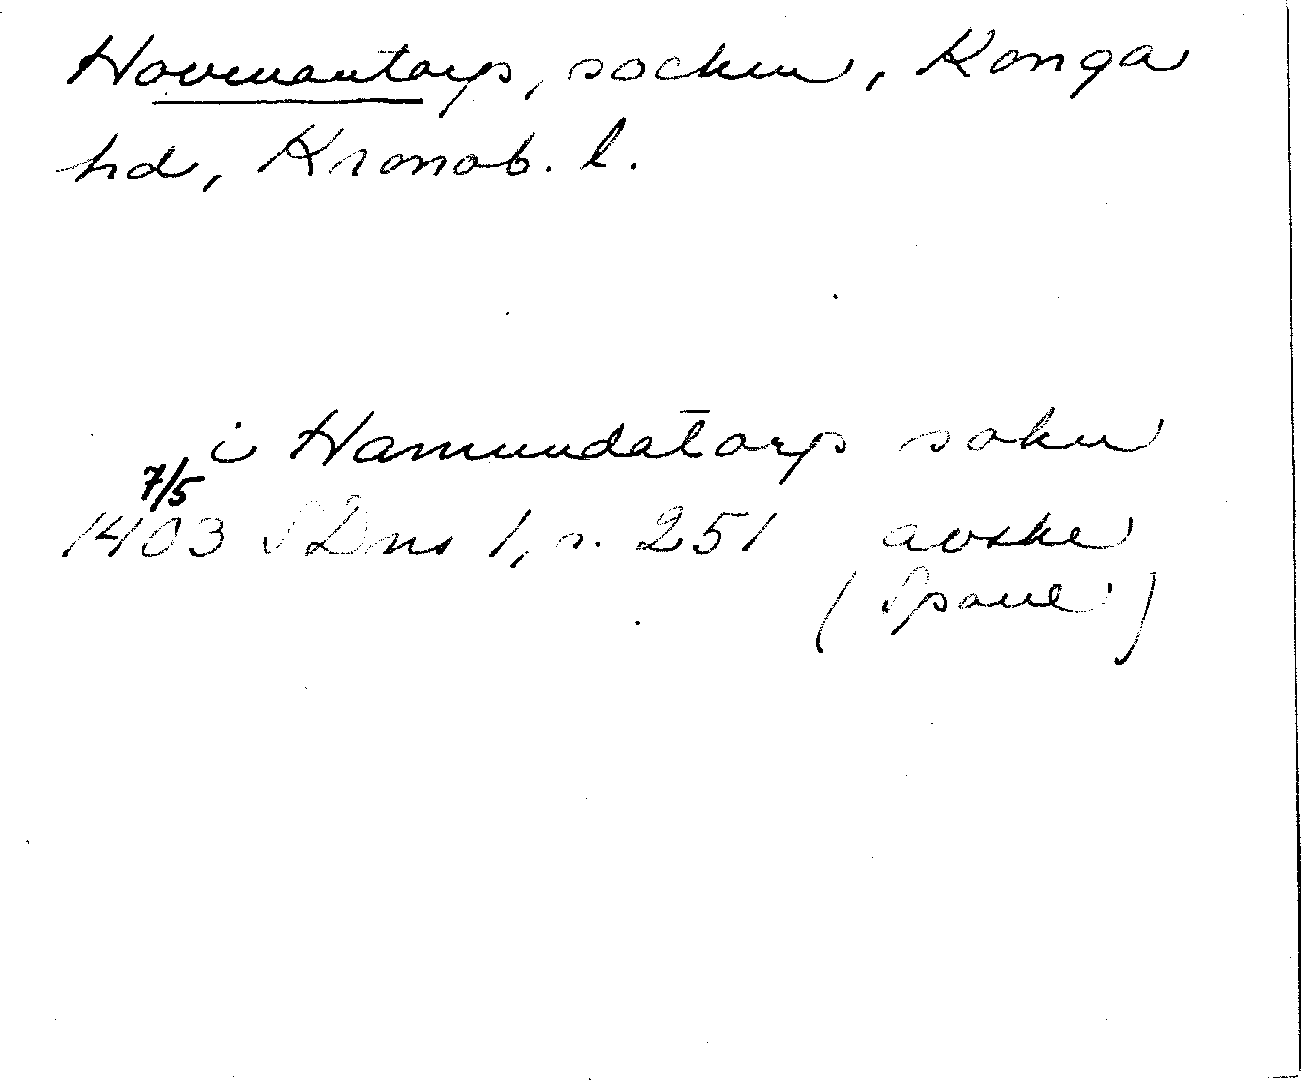 Hovmantorp, socken, Konga
hd, Kronob. l.
i Hamundatorp sokn
7/5
1403 SDns 1, s. 251 avskr
(Spole)